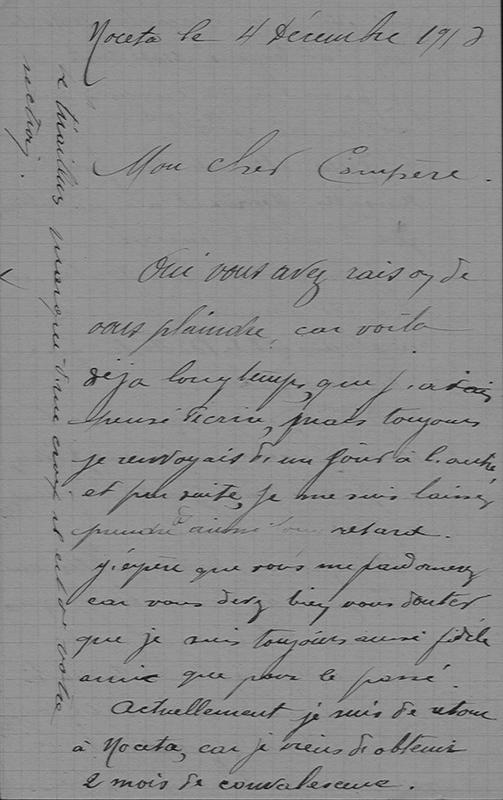 Noceta le 4 Décembre 191
Mon cher Compère.
Oui vous avez raison de
vous plaindre, car voilà
déja longtemps, que j'avais
pensé décrire, mais toujours
je renvoyais de un jour à l'autre
et par suite, je me suis laissez
prendre aussi retard.
j'éspère que vous me pardonnerez
car vous devez bien vous douter
que je suis toujours aussi fidèle
amie que par le passé.
Actuellement je suis de retour
à Noceta, car je viens de obtenir
2 mois de convalescence.
marqué d'une croix et est votre